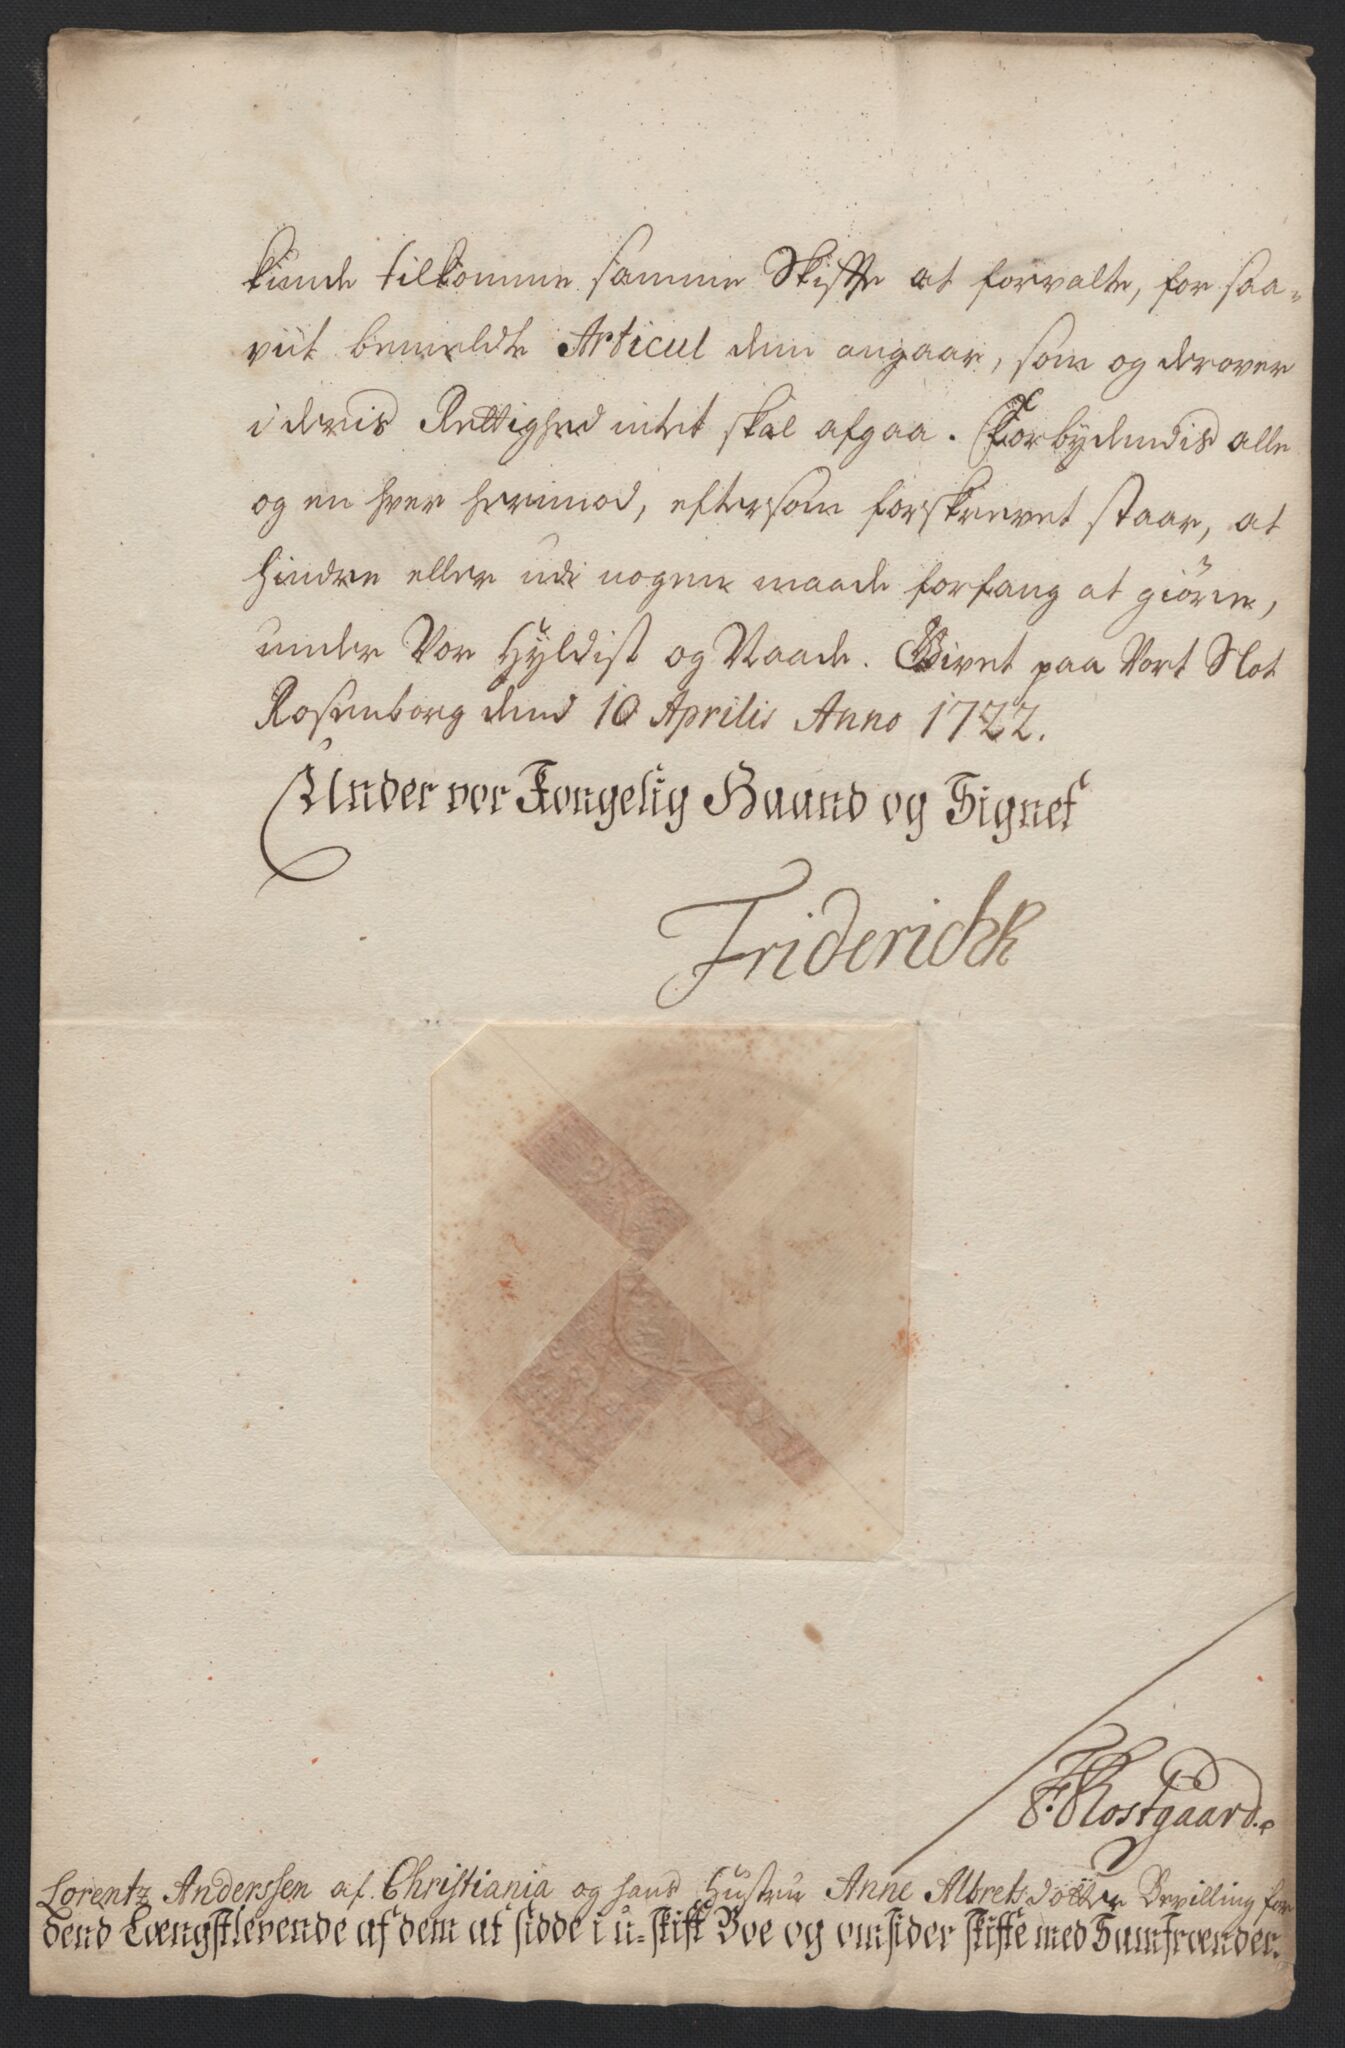 kunde tilkomme samme Skifte at forvalte, for saa-
viit bemeldte Articul dem angaar, som og derover
i deris Rettighed intet skal afgaa. Forbydendis alle
og en hver herimod, eftersom forskrevet staar, at
hindre eller udi nogen maade forfang at giøre,
under Vor Hyldist og Naade. Givet paa Vort Slot
Rosenborg dend 10 Aprilis Anno 1722.
Under vor Kongelig Haand og Signet
Friderich R
F. Rostgaard.
Lorentz Anderssen af Christiania og hans Hustru Anne Albrets dotter Bevilling for
dend Længstlevende af dem at sidde i u-skift Boe og omsider skifte med Samfrænder.